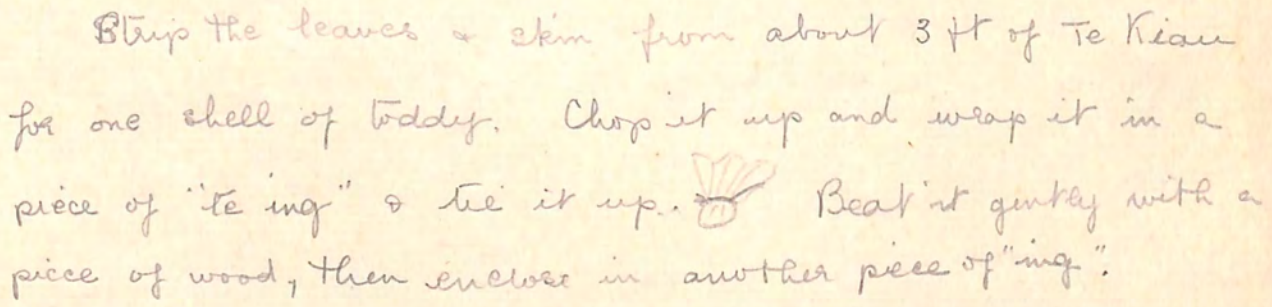 Strip the leaves & skin from about 3 ft of Te Kiau
for one shell of toddy. Chop it up and wrap it in a
piece of "te ing" & tie it up. Beat it gently with a
piece of wood, then enclose in another piece of "ing".